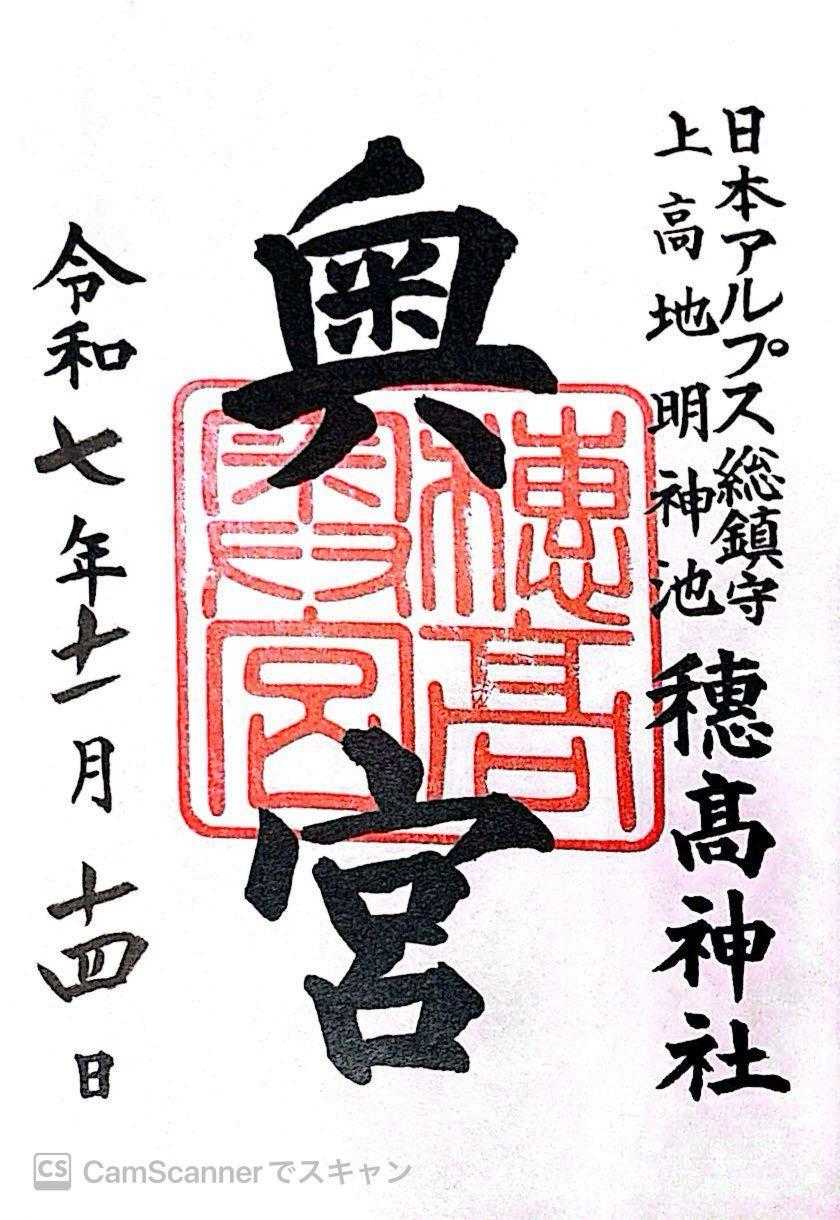 日本アルプス総鎮守
上高地明神池
穂髙神社
奥宮
穂髙
奥宮
令和七年十一月十四日
CS CamScannerでスキャン